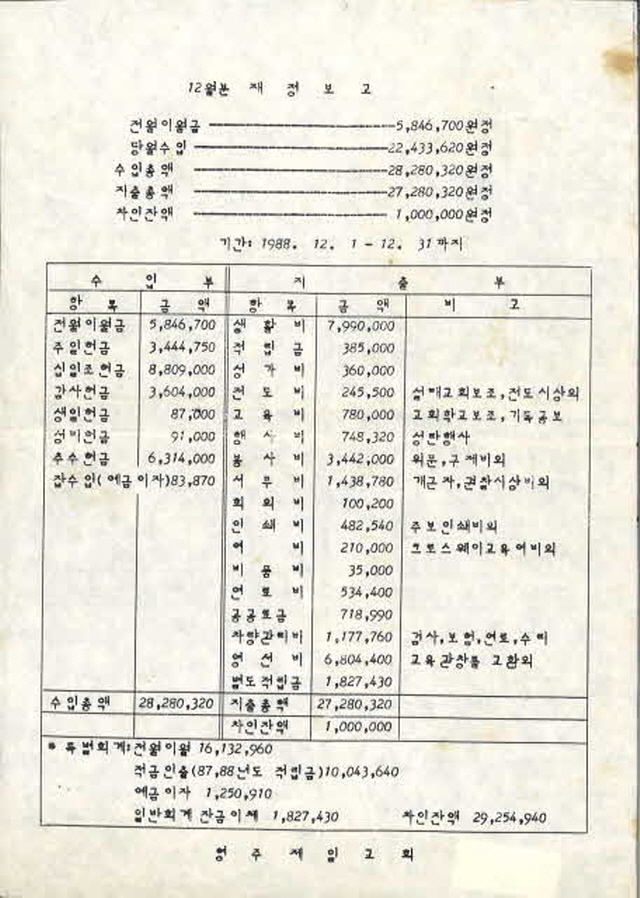 12월분 재 정 보 고
전월이월금 5,846,700원정
당월수입 22,433,620원정
수입총액 28,280,320원정
지출총액 27,280,320원정
차인잔액 1,000,000원정
기간: 1988. 12. 1 - 12. 31까지
수 입 부 지 출 부
항 목 금 액 항 목 금 액 비 고
전월이월금 5,846,700 생 활 비 7,990,000
주일헌금 3,444,750 적 립 금 385,000
십일조헌금 8,809,000 성 가 비 360,000
감사헌금 3,604,000 전 도 비 245,500 설매교회보조,전도시상외
생일헌금 87,000 교 육 비 780,000 교회학교보조,기독공보
성미헌금 91,000 행 사 비 748,320 성탄행사
추수헌금 6,314,000 봉 사 비 3,442,000 위문,구제비외
잡수입(예금이자)83,870 서 무 비 1,438,780 개근자,권찰시상비외
회 의 비 100,200
인 쇄 비 482,540 주보인쇄비외
여 비 210,000 크로스웨이교육여비외
비 품 비 35,000
연 료 비 534,400
공공요금 718,990
차량관리비 1,177,760 검사,보험,연료,수리
영 선 비 6,804,400 교육관창틀 교환외
별도적립금 1,827,430
수입총액 28,280,320 지출총액 27,280,320
차인잔액 1,000,000
* 특별회계:전월이월 16,132,960
적금인출(87,88년도 적립금)10,043,640
예금이자 1,250,910
일반회계 잔금이체 1,827,430 차인잔액 29,254,940
영 주 제 일 교 회